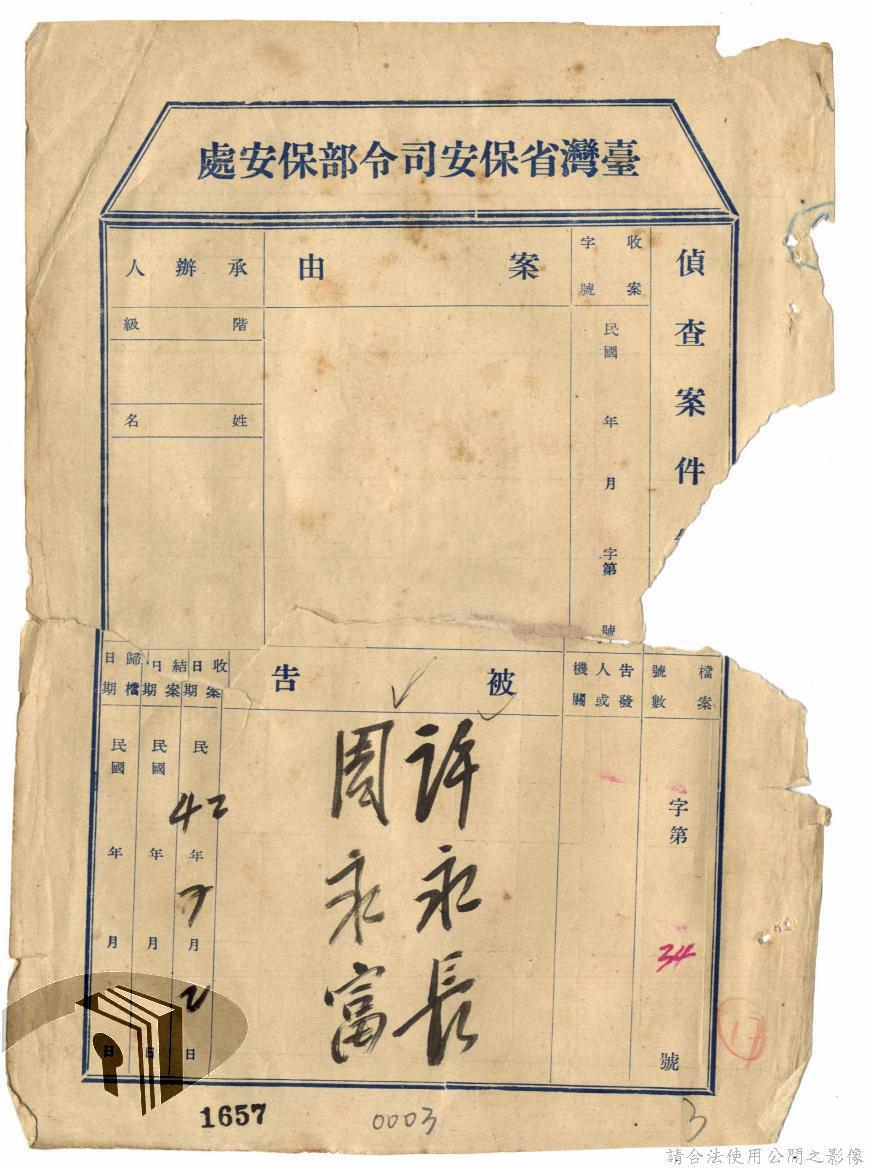 臺灣省保安司令部保安處
偵查案件
收案字號
民國 年 月 字第 號
案由
承辦人
階級
姓名
檔案號數
字第 34 號
告發人或機關
被告
許永長
周永富
收案日期
民 42 年 7 月 2 日
結案日期
民國 年 月 日
歸檔日期
民國 年 月 日
17
1657
0003
3
請合法使用公開之影像